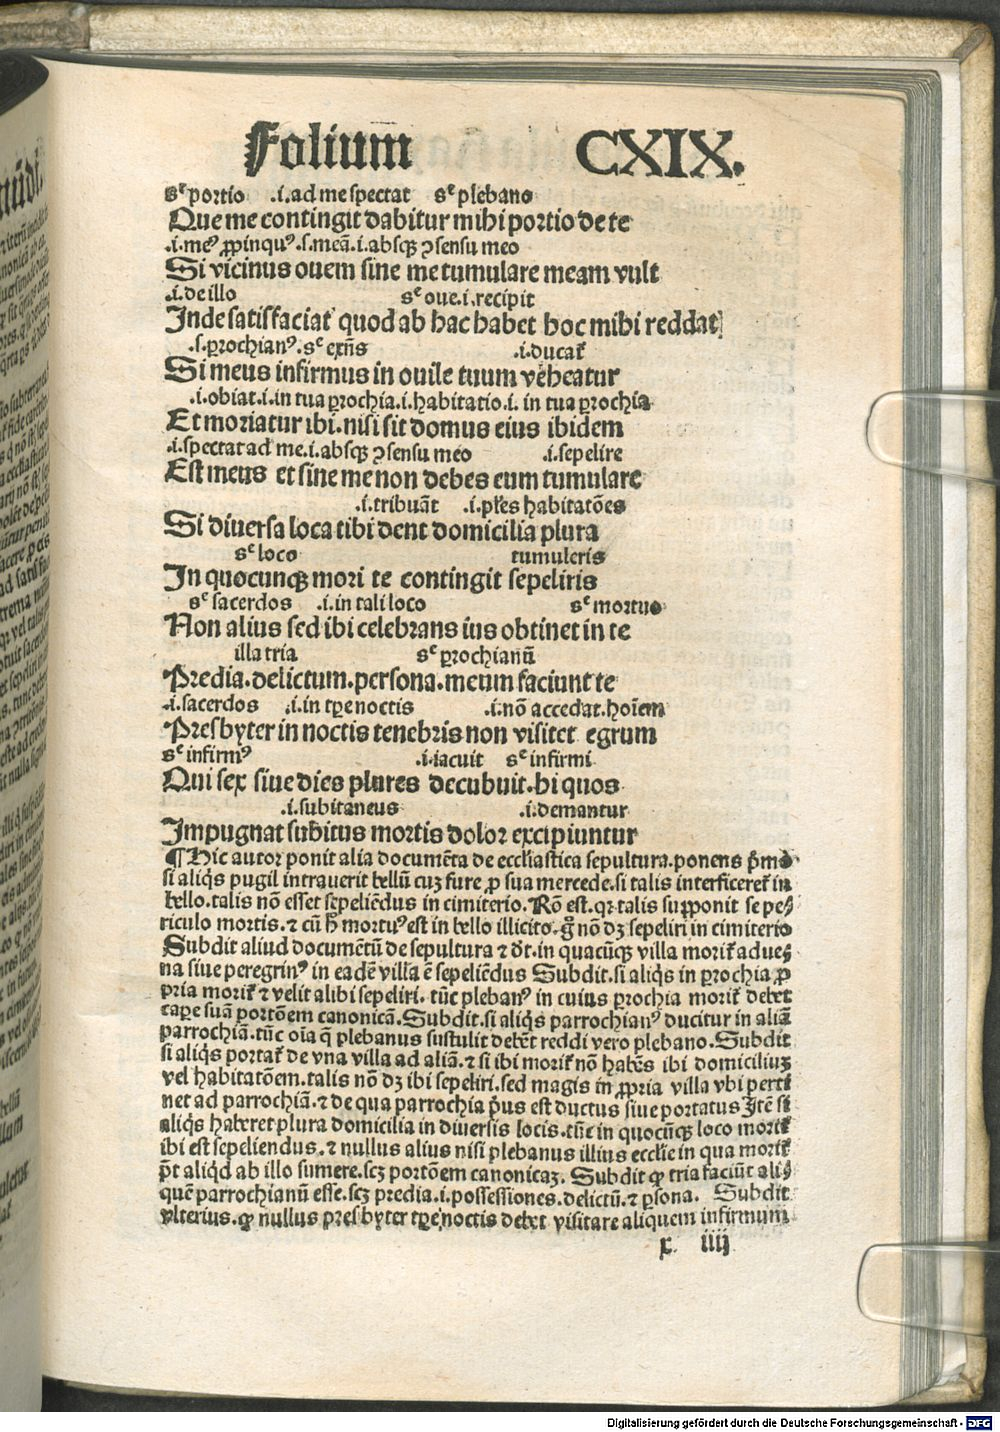 Folium CXIX.
sᵉ portio .i. ad me spectat sᵉ plebano
Que me contingit dabitur mihi portio de te
.i. meꝰ ꝓpinquꝰ .s. meā .i. absqꝫ ↄsensu meo
Si vicinus ouem sine me tumulare meam vult
.i. de illo sᵉ oue .i. recipit
Inde satisfaciat quod ab hac habet hoc mihi reddat
.s. ꝑrochianꝰ. sᵉ exñs .i. ducat̄
Si meus infirmus in ouile tuum veheatur
.i. obiat .i. in tua ꝑrochia .i. habitatio .i. in tua ꝑrochia
Et moriatur ibi. nisi sit domus eius ibidem
.i. spectat ad me .i. absqꝫ ↄsensu meo .i. sepelire
Est meus et sine me non debes eum tumulare
.i. tribuāt .i. pl̄es habitatōes
Si diuersa loca tibi dent domicilia plura
sᵉ loco tumuleris
In quocunqꝫ mori te contingit sepeliris
sᵉ sacerdos .i. in tali loco sᵉ mortuo
Non alius sed ibi celebrans ius obtinet in te
illa tria sᵉ ꝑrochianū
Predia. delictum. persona. meum faciunt te
.i. sacerdos .i. in tꝑe noctis .i. nō accedat. hoīem
Presbyter in noctis tenebris non visitet egrum
sᵉ infirmꝰ .i. iacuit sᵉ infirmi
Qui sex siue dies plures decubuit. hi quos
.i. subitaneus .i. demantur
Impugnat subitus mortis dolor excipiuntur
¶ Hic autor ponit alia documēta de eccl̄iastica sepultura. ponens p̄mo
si aliq̄s pugil intrauerit bellū cuꝫ fure ꝓ sua mercede. si talis interficeret̄ in
bello. talis nō esset sepeliēdus in cimiterio. Rō est. qꝛ talis supponit se pe⸗
riculo mortis. ⁊ cū h̄ mortuꝰ est in bello illicito. g̊ nō dꝫ sepeliri in cimiterio
Subdit aliud documētū de sepultura ⁊ dt̄. in quacūqꝫ villa morit̄ adue⸗
na siue peregrinꝰ in eadē villa ē sepeliēdus Subdit. si aliq̄s in ꝑrochia ꝓ
pria morit̄ ⁊ velit alibi sepeliri. tūc plebanꝰ in cuius ꝑrochia morit̄ debet
caꝑe suā portōem canonicā. Subdit. si aliq̄s parrochianꝰ ducitur in aliā
parrochiā. tūc oīa q̄ plebanus sustulit debēt reddi vero plebano. Subdit
si aliq̄s portat̄ de vna villa ad aliā. ⁊ si ibi morit̄ nō habēs ibi domiciliuꝫ
vel habitatōem. talis nō dꝫ ibi sepeliri. sed magis in ꝓpria villa vbi perti
net ad parrochiā. ⁊ de qua parrochia p̄us est ductus siue portatus Itē si
aliq̄s haberet plura domicilia in diuersis locis. tūc in quocūqꝫ loco morit̄
ibi est sepeliendus. ⁊ nullus alius nisi plebanus illius eccl̄ie in qua morit̄
p̄t aliq̄d ab illo sumere. scꝫ portōem canonicaꝫ. Subdit ꝙ tria faciūt ali⸗
quē parrochianū esse. scꝫ predia .i. possessiones. delictū. ⁊ ꝑsona. Subdit
vlterius. ꝙ nullus presbyter tꝑe noctis debet visitare aliquem infirmum
x iiij
Digitalisierung gefördert durch die Deutsche Forschungsgemeinschaft - DFG